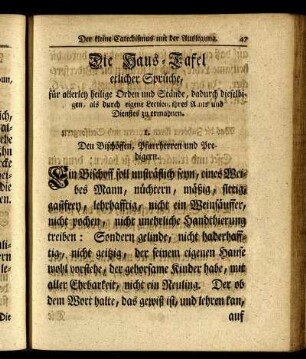 Der kleine Catechismus mit der Auslegung. 47
Die Haus-Tafel
etlicher Sprüche,
für allerley heilige Orden und Stände, dadurch dieselbi-
gen, als durch eigene Lection, ihres Amts und
Dienstes zu ermahnen.
1.
Den Bischöffen, Pfarrherren und Pre-
digern.
Ein Bischoff soll unsträflich seyn, eines Wei-
bes Mann, nüchtern, mäßig, sittig,
gastfrey, lehrhafftig, nicht ein Weinsäuffer,
nicht pochen, nicht unehrliche Handthierung
treiben: Sondern gelinde, nicht haderhaff-
tig, nicht geitzig, der seinem eigenen Hause
wohl vorstehe, der gehorsame Kinder habe, mit
aller Ehrbarkeit, nicht ein Neuling. Der ob
dem Wort halte, das gewiß ist, und lehren kan,
auf